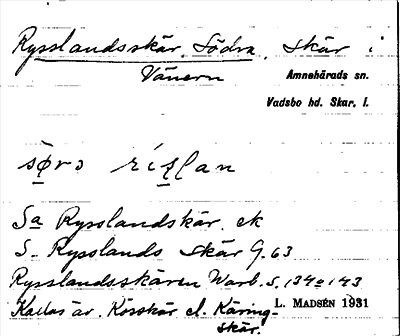 Rysslandsskär, Södra, skär i
Vänern
Amnehärads sn.
Vadsbo hd. Skar. l.
Sa Rysslandskär. ek
S. Rysslands skär G. 63
Rysslandsskären Warb. s. 134 o 143
Kallas äv. Korsskär el. Käring-
skär.
L. MADSÉN 1931